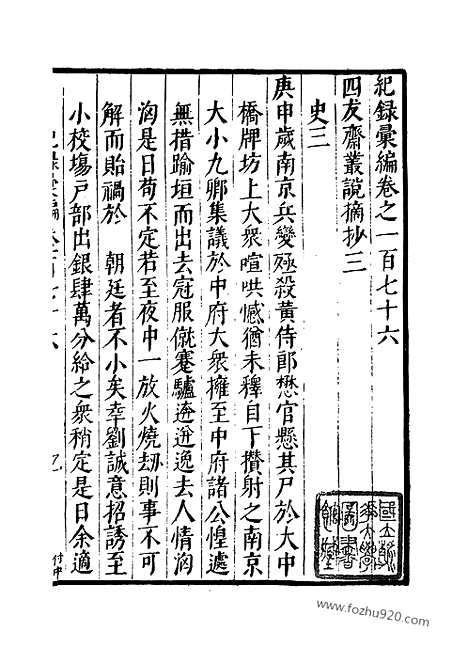 紀録彙編卷之一百七十六
四友齋叢說摘抄三
史三
庚申歲南京兵變殛殺黄侍郎懋官懸其尸於大中
橋牌坊上大衆喧哄憾猶未釋自下攢射之南京
大小九卿集議於中府大衆擁至中府諸公惶遽
無措踰垣而出去冠服僦蹇驢迸逸去人情洶
洶是日苟不定若至夜中一放火燒刼則事不可
解而貽禍於 朝廷者不小矣幸劉誠意招誘至
小校塲戸部出銀肆萬分給之衆稍定是日余適
www.fozhu920.com